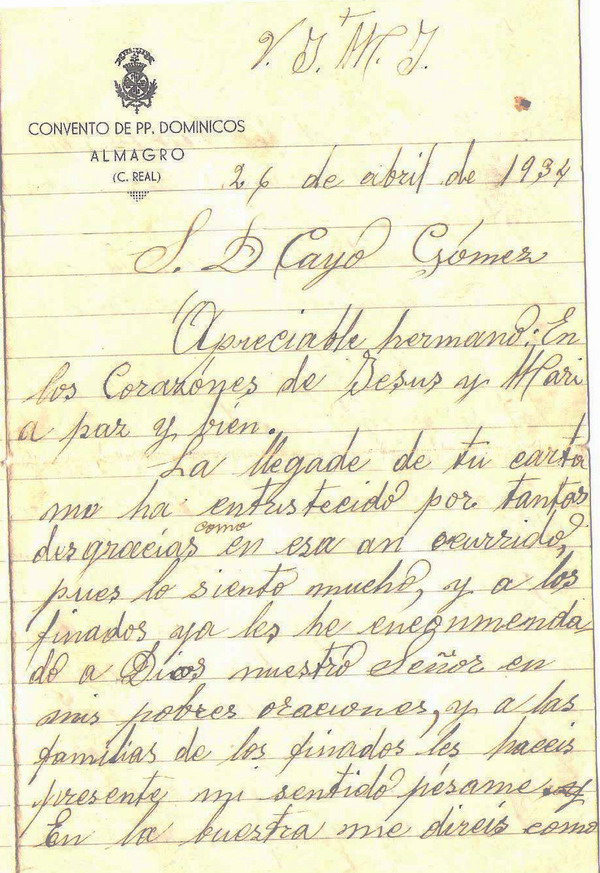 V. J. M. J.
CONVENTO DE PP. DOMINICOS
ALMAGRO
(C. REAL)
26 de abril de 1934
S. D Cayo Gómez
Apreciable hermano: En
los Corazones de Jesus y Mari
a paz y bien.
La llegade de tu carta
me ha entristecido por tantas
desgracias como en esa an ocurrido,
pues lo siento mucho, y a los
finados ya les he encomenda
do a Dios nuestro Señor en
mis pobres oraciones, y a las
familias de los finados les haceis
presente mi sentido pésame y
En la buestra me direis como